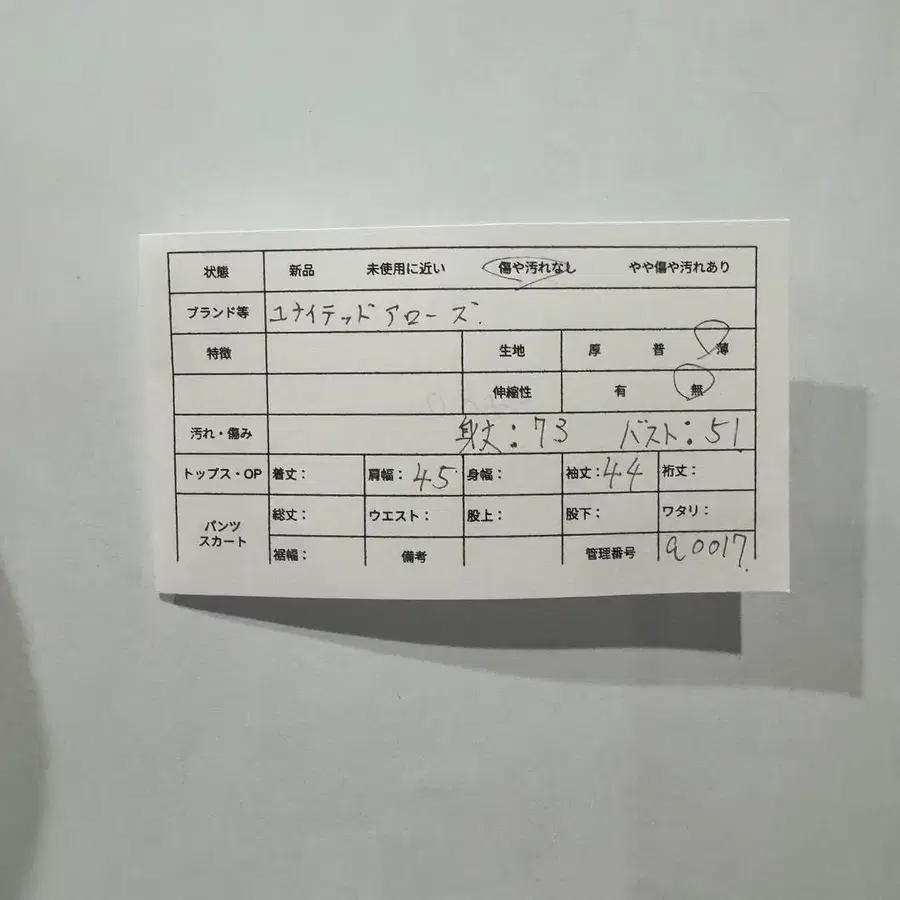 状態 新品 未使用に近い 傷や汚れなし やや傷や汚れあり
ブランド等 ユナイテッドアローズ.
特徴 生地 厚 普 薄
伸縮性 有 無
汚れ・傷み 身丈:73 バスト:51
トップス・OP 着丈: 肩幅:45 身幅: 袖丈:44 裄丈:
パンツ スカート 総丈: ウエスト: 股上: 股下: ワタリ:
裾幅: 備考 管理番号 a0017.